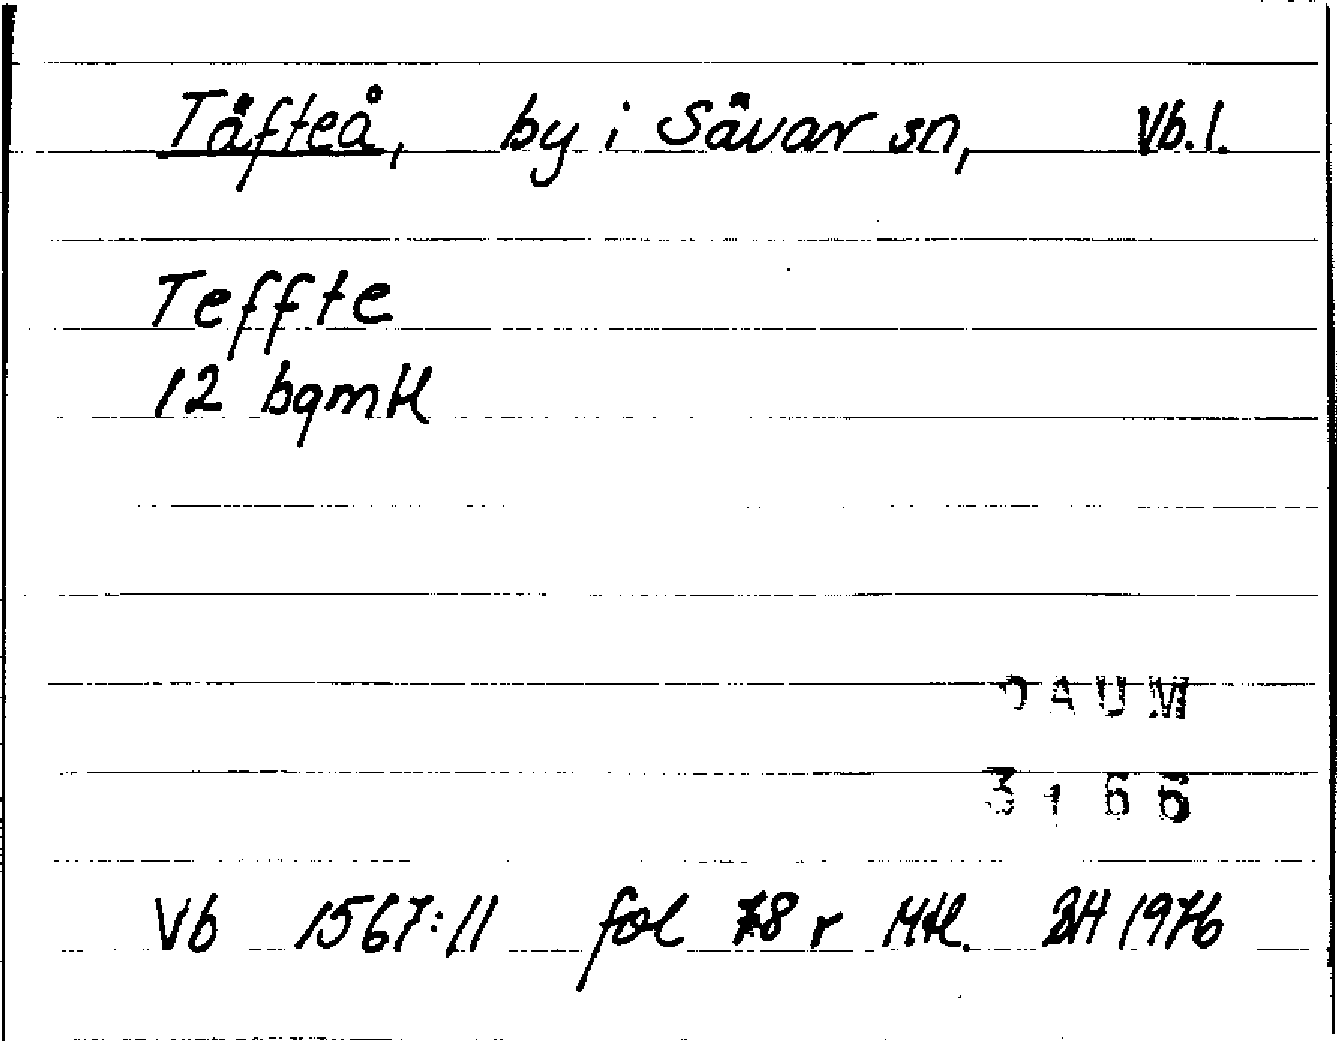 Täfteå, by i Sävar sn, Vb.l.
Teffte
12 bqmtl
DAUM
3166
Vb 1567:11 fol 78 r Mtl. BH 1976